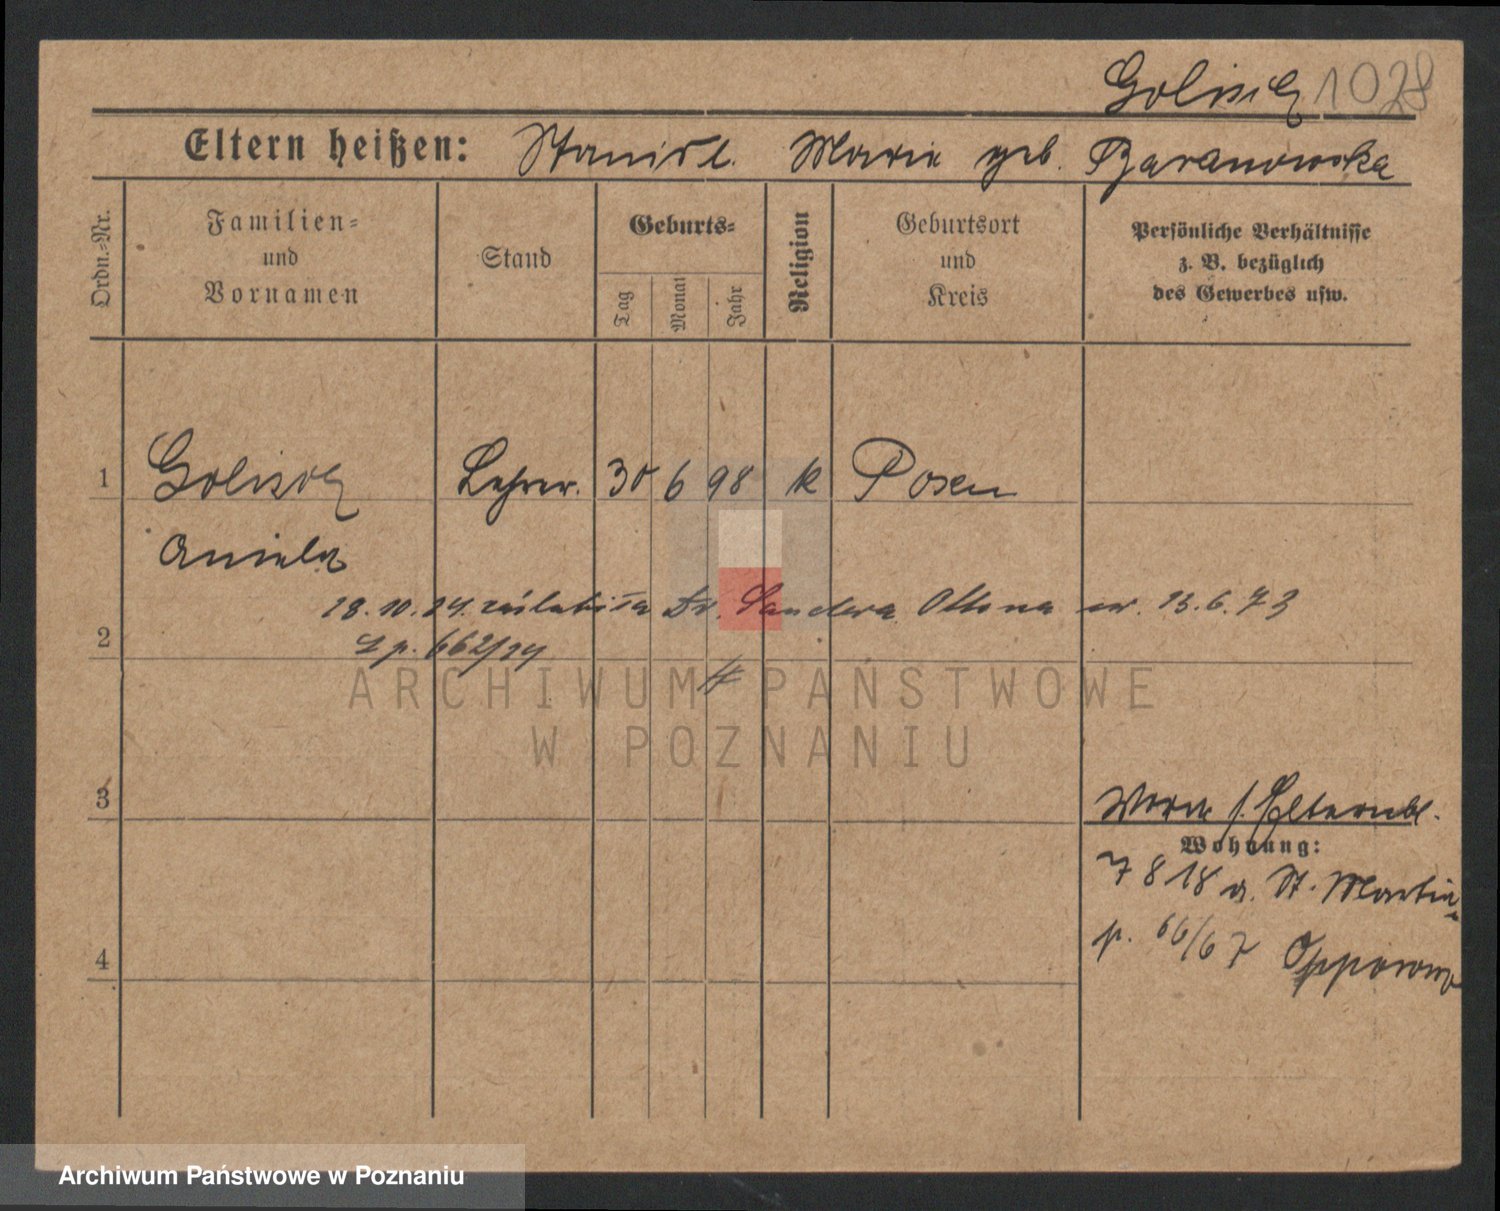 Golisch 1028
Eltern heißen: Stanisl. Maria geb. Baranowska
Ordn.-Nr.
Familien-
und
Vornamen
Stand
Geburts-
Tag
Monat
Jahr
Religion
Geburtsort
und
Kreis
Persönliche Verhältnisse
z. B. bezüglich
des Gewerbes usw.
1 Golisch Lehrer. 30 6 98 k Posen
Aniela
18.10.24. zaślubiła Dr. Sandera Ottona ur. 13.6.73
2 Lp. 662/24
3
Wohnung:
7 8 18 a. St. Martin
p. 66/67
4
ARCHIWUM PAŃSTWOWE
W POZNANIU
Archiwum Państwowe w Poznaniu